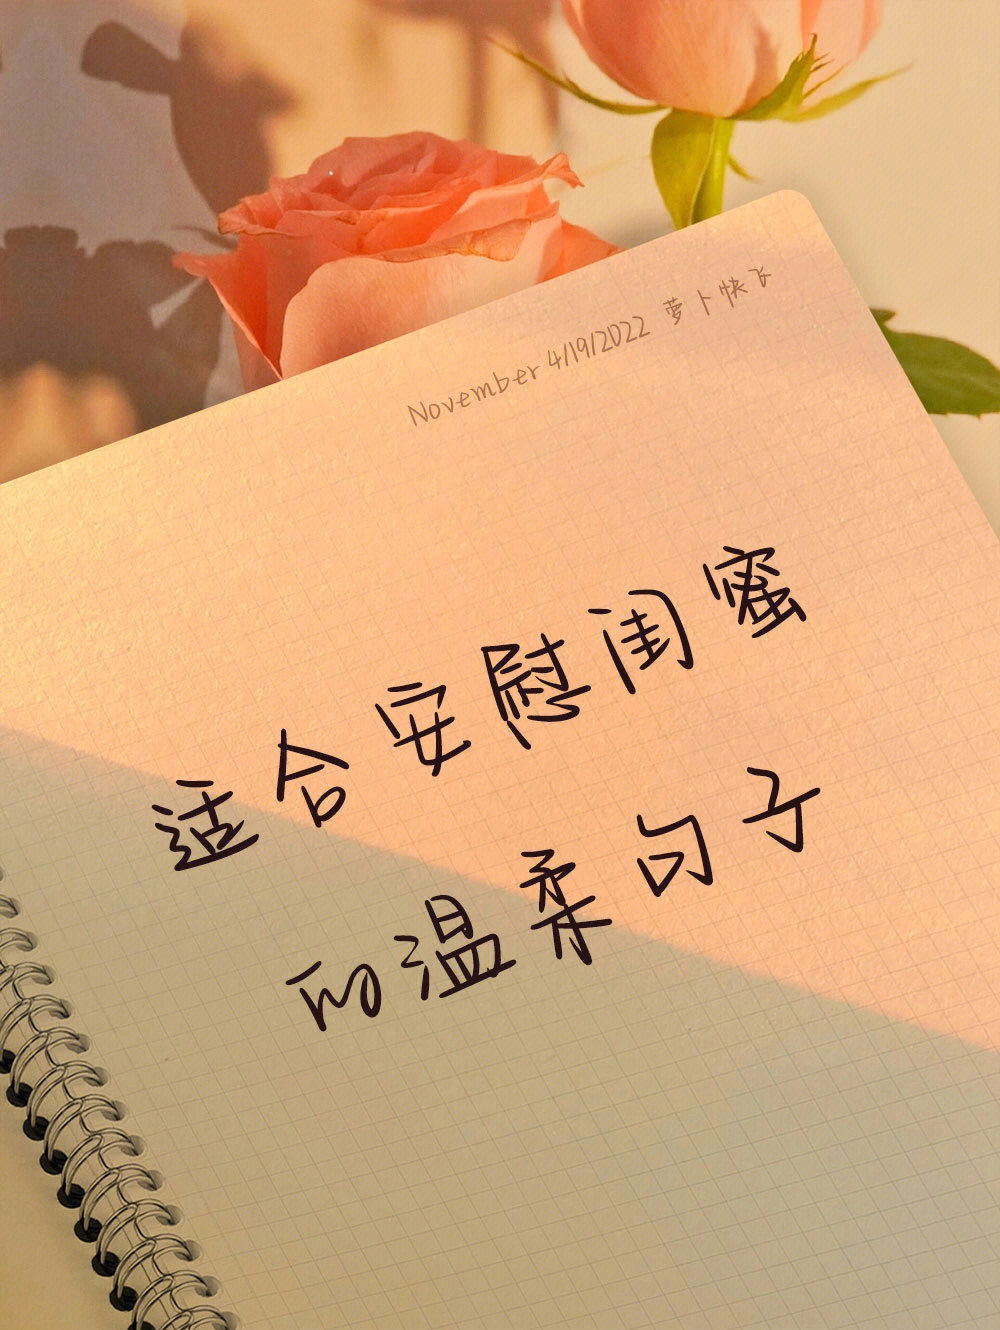 November 4/19/2022 萝卜快飞
适合安慰闺蜜
的温柔句子